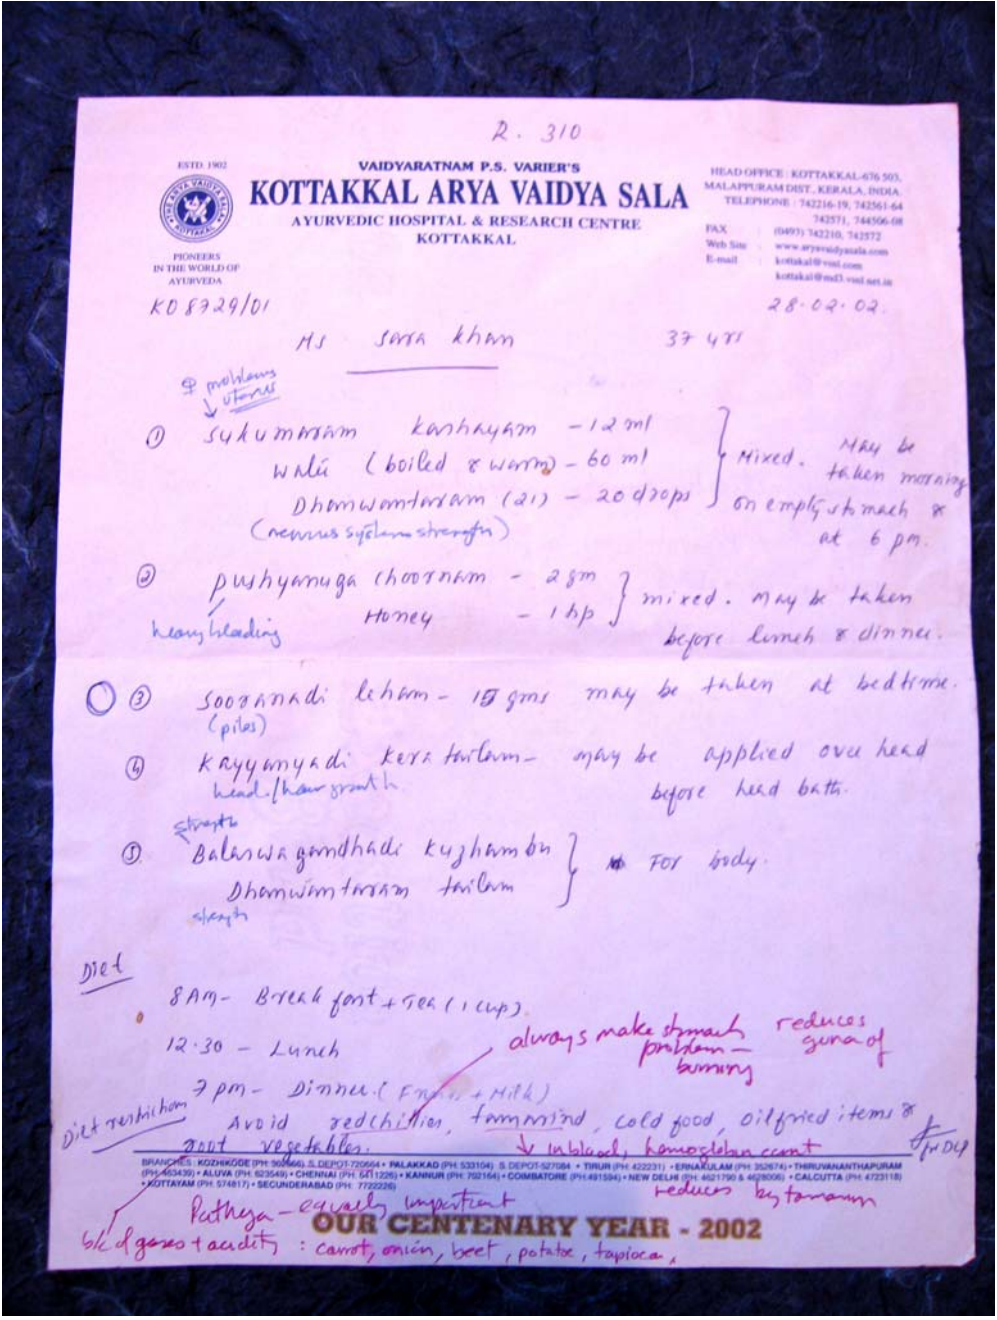 R. 310
ESTD. 1902
THE ARYA VAIDYA SALA KOTTAKAL
PIONEERS
IN THE WORLD OF
AYURVEDA
VAIDYARATNAM P.S. VARIER'S
KOTTAKKAL ARYA VAIDYA SALA
AYURVEDIC HOSPITAL & RESEARCH CENTRE
KOTTAKKAL
HEAD OFFICE : KOTTAKKAL-676 503,
MALAPPURAM DIST., KERALA, INDIA.
TELEPHONE : 742216-19, 742561-64
742571, 744506-08
FAX : (0493) 742210, 742572
Web Site : www.aryavaidyasala.com
E-mail : kottakal@vsnl.com
kottakal@md3.vsnl.net.in
KO 8729/01
28.02.02.
Ms Sara Khan 37 yrs
♀ problems
uterus
① Sukumaram Kashayam - 12 ml
(boiled & warm) - 60 ml
Dhanwantaram (21) - 20 drops
Mixed. May be
taken morning
on empty stomach &
at 6 pm.
(nervous system strength)
② Pushyanuga Choornam - 2 gm
Honey - 1
mixed. May be taken
before lunch & dinner.
heavy bleeding
③ Sooranadi leham - 15 gms may be taken at bedtime.
(piles)
④ Kayyanyadi Kera tailam - may be applied over head
before head bath.
head/hair growth
strength
⑤ Balaswagandhadi Kuzhambu
Dhanwantaram tailam
For body.
strength
Diet
8 AM - Breakfast + Tea (1 cup).
12.30 - Lunch
7 pm - Dinner ( + Milk)
always make stomach
problem -
burning
reduces
guna of
Diet restriction
Avoid redchillies, tammrind, cold food, oilfried items &
root vegetables.
↓ in blood, hemoglobin count
reduces by
BRANCHES : KOZHIKODE S. DEPOT-720664 • PALAKKAD (PH: 533104) S. DEPOT-527084 • TIRUR (PH: 422231) • ERNAKULAM (PH: 352674) • THIRUVANANTHAPURAM
(PH: 463439) • ALUVA (PH: 623549) • CHENNAI (PH: 6411226) • KANNUR (PH: 702164) • COIMBATORE (PH:491594) • NEW DELHI (PH: 4621790 & 4628006) • CALCUTTA (PH: 4723118)
• KOTTAYAM (PH: 574817) • SECUNDERABAD (PH: 7722226)
Pathya - equally important
OUR CENTENARY YEAR - 2002
b/c of gases + acidity : carrot, onion, beet, potatoe, tapioca,